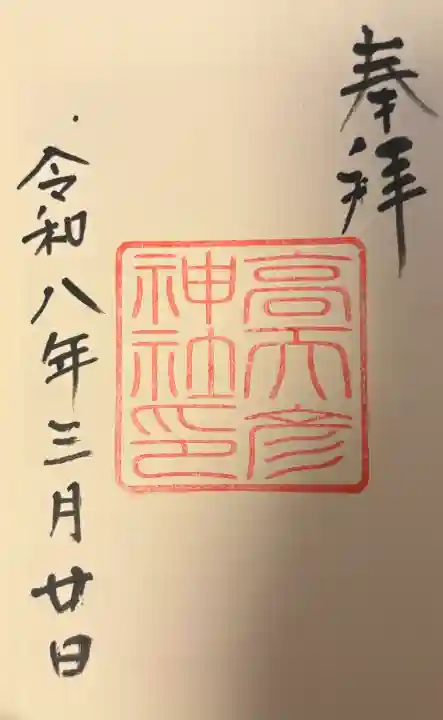 奉拝
高天彦
神社印
令和八年三月廿日